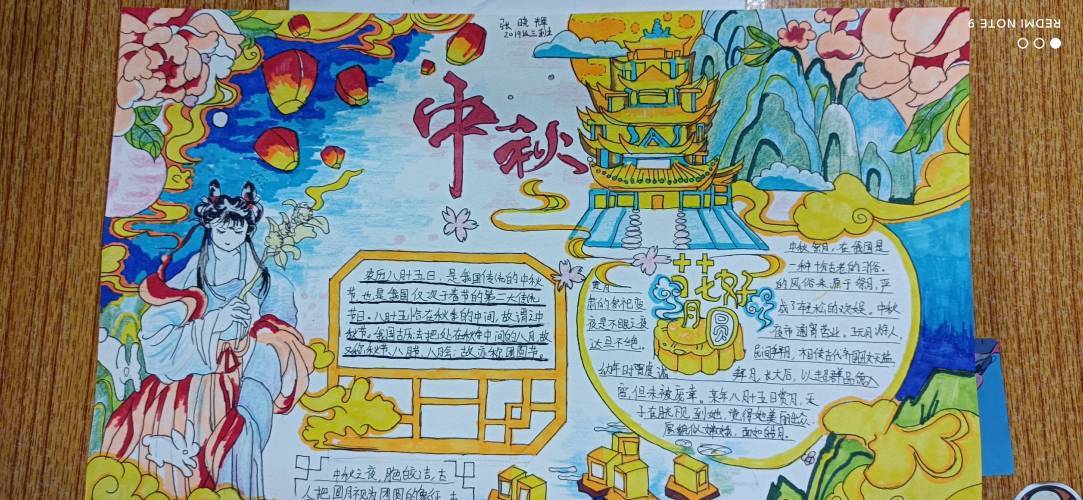 张晓辉
2019级三班
REDMI NOTE 9
中秋
农历八月十五日，是我国传统的中秋
节，也是我国仅次于春节的第二大传统
节日。八月十五恰在秋季的中间，故谓之中
秋节。我国古历法把处在秋季中间的八月，故
又称秋节、八月节、八月会；故亦称团圆节。
中秋之夜，月色皎洁，古
人把圆月视为团圆的象征，古
花好
月圆
中秋祭月，在我国是
一种十分古老的习俗。
的风俗来源于祭月，严
肃的祭祀变
成了轻松的欢娱。中秋
夜是不眠之夜
夜市通宵营业，玩月游人，
达旦不绝。
民间拜月，相传古代齐国丑女无盐
幼年时曾虔诚
拜月，长大后，以超群品德入
宫，但未被宠幸。某年八月十五日赏月，天
子在月光下见到她，觉得她美丽出众
貌似嫦娥，面如皓月。